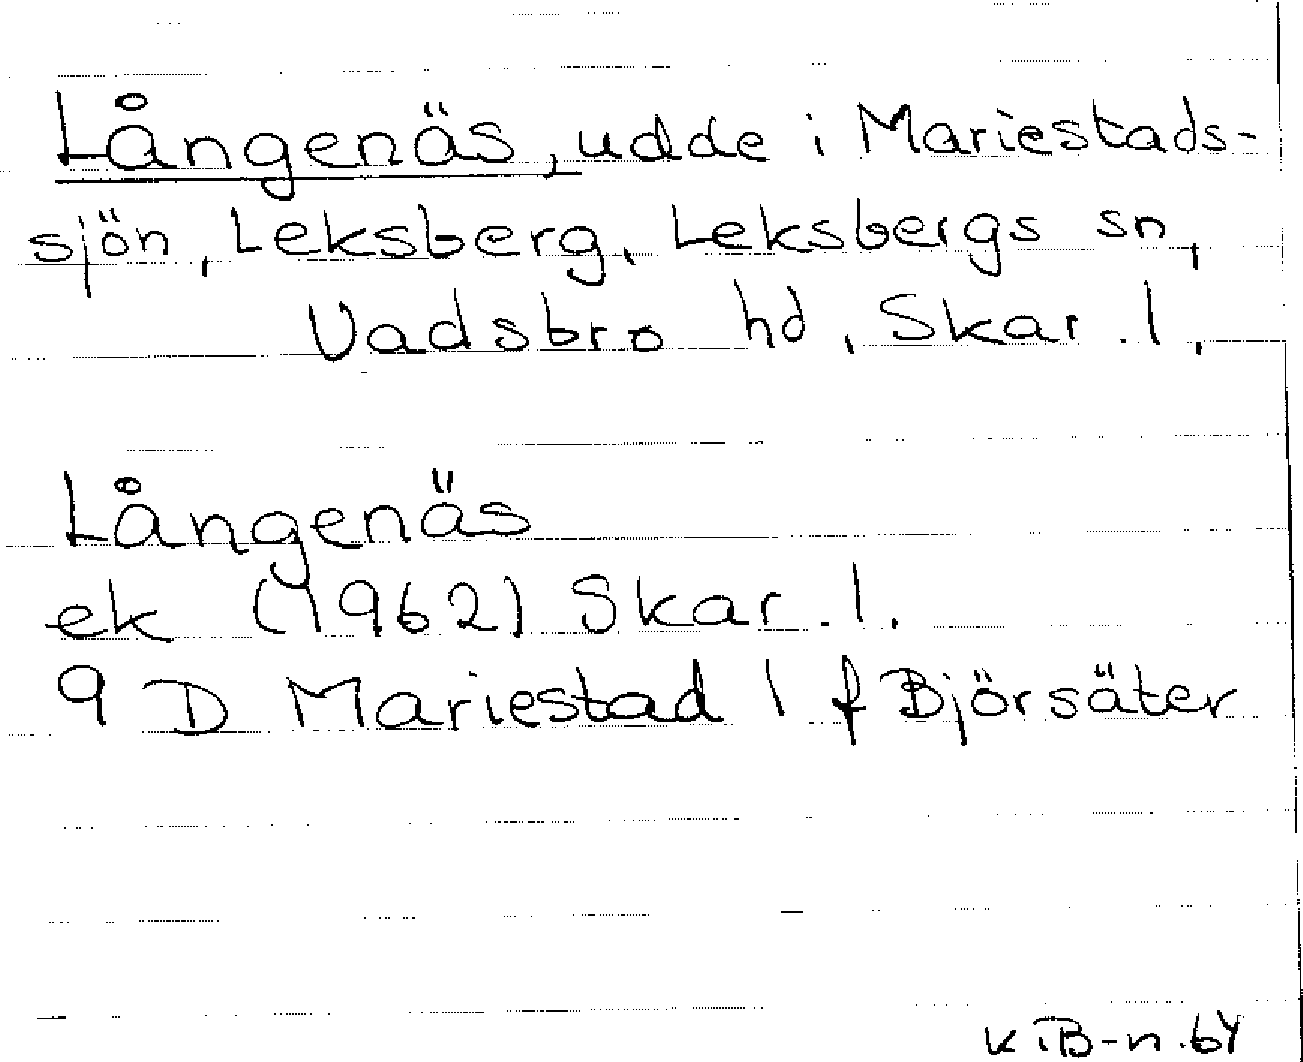 Långenäs, udde i Mariestads-
sjön, Leksberg, Leksbergs sn,
Vadsbro hd, Skar. l,
Långenäs
ek (1962) Skar. l.
9 D Mariestad l f Björsäter
K iB-n.64